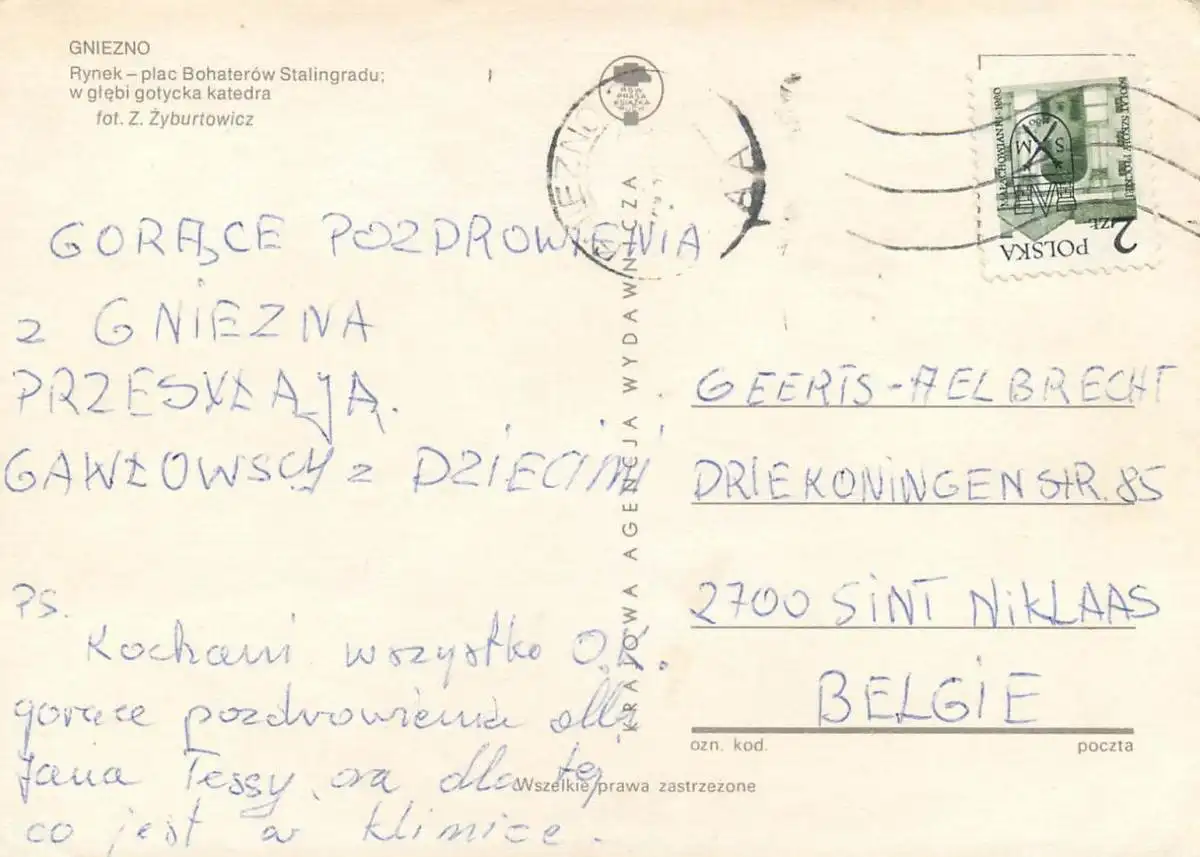 GNIEZNO
Rynek – plac Bohaterów Stalingradu;
w głębi gotycka katedra
fot. Z. Żyburtowicz
RSW
PRASA
KSIĄŻKA
RUCH
GNIEZNO
AA
MAŁACHOWIANKA 1180-1980
1180
S M
POLSKA
2 ZŁ
GORĄCE POZDROWIENIA
z GNIEZNA
PRZESYŁAJĄ.
GAWŁOWSCY z DZIECIMI
PS.
Kochani wszystko O.K.
gorące pozdrowienia dla
Jana Tessy, ora dla tej
co jest w klinice.
KRAJOWA AGENCJA WYDAWNICZA
GEERTS-AELBRECHT
DRIEKONINGENSTR. 85
2700 SINT NIKLAAS
BELGIE
ozn. kod. poczta
Wszelkie prawa zastrzeżone